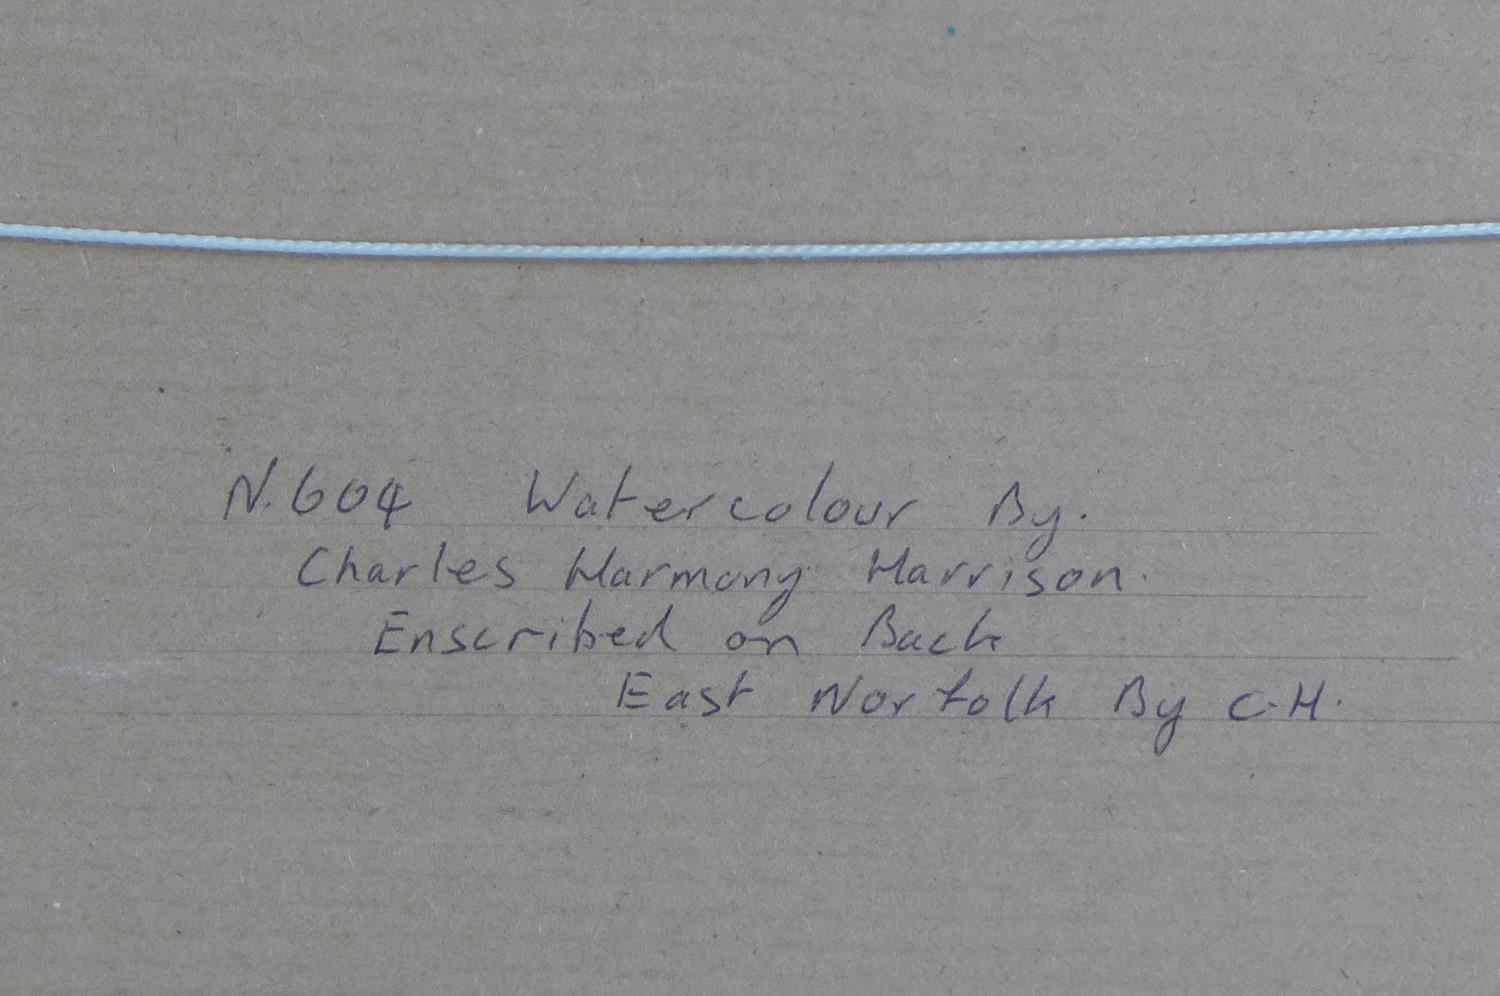 N.604 Watercolour By.
Charles Harmony Harrison.
Enscribed on Back
East Norfolk By C.H.